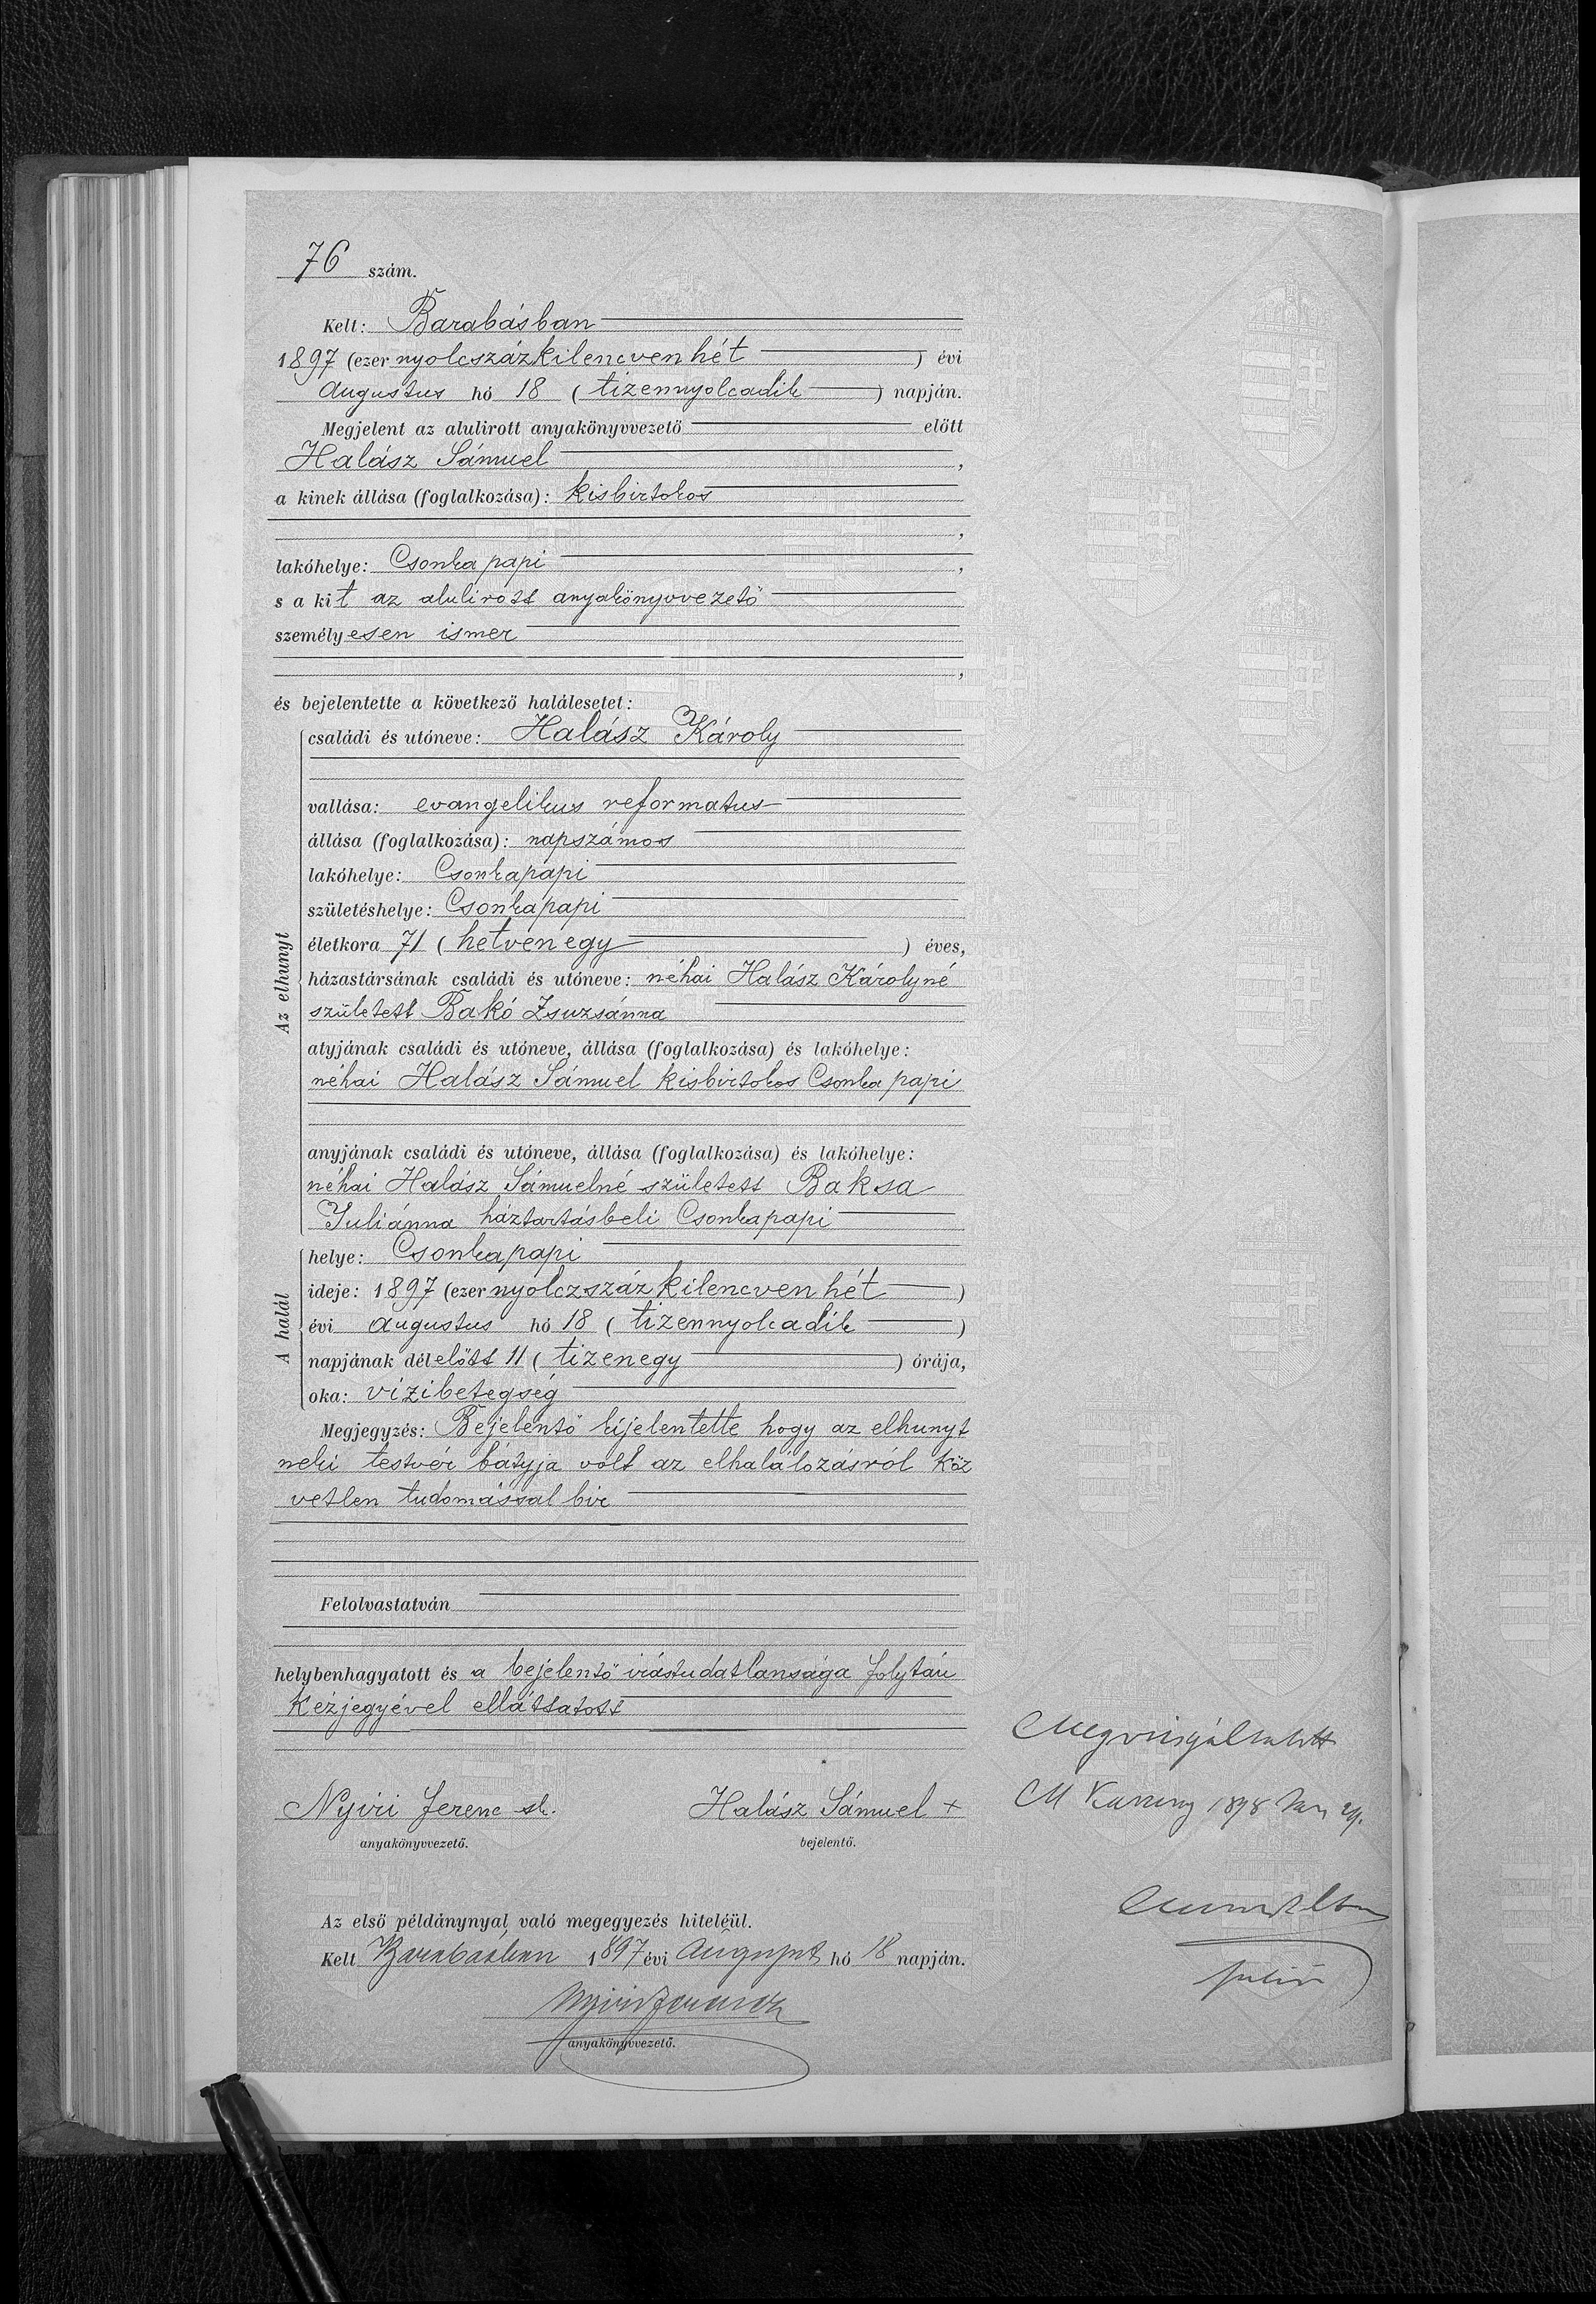 76 szám.
Kelt: Barabásban
1897 (ezer nyolcszázkilencven hét) évi
Augustus hó 18 (tizennyolcadik) napján.
Megjelent az alulirott anyakönyvvezető előtt
Halász Sámuel,
a kinek állása (foglalkozása): kisbirtokos
,
lakóhelye: Csonka papi,
s a kit az alulirott anyakönyvvezető
személyesen ismer
,
és bejelentette a következő halálesetet:
Az elhunyt
családi és utóneve: Halász Károly
vallása: evangelikus reformatus
állása (foglalkozása): napszámos
lakóhelye: Csonkapapi
születéshelye: Csonkapapi
életkora 71 (hetvenegy) éves,
házastársának családi és utóneve: néhai Halász Károlyné
született Bakó Zsuzsánna
atyjának családi és utóneve, állása (foglalkozása) és lakóhelye:
néhai Halász Sámuel kisbirtokos Csonka papi
anyjának családi és utóneve, állása (foglalkozása) és lakóhelye:
néhai Halász Sámuelné született Baksa
Juliánna háztartásbeli Csonkapapi
A halál
helye: Csonkapapi
ideje: 1897 (ezer nyolczszáz kilencven hét)
évi augustus hó 18 (tizennyolcadik)
napjának délelőtt 11 (tizenegy) órája,
oka: vizibetegség
Megjegyzés: Bejelentő kijelentette hogy az elhunyt
neki testvér bátyja volt az elhalálozásról köz
vetlen tudomással bir
Felolvastatván
helybenhagyatott és a bejelentő irástudatlansága folytán
kézjegyével elláttatott
Nyiri Ferenc sk.
anyakönyvvezető.
Halász Sámuel +
bejelentő.
Megvizsgáltatott
1898
Az első példánynyal való megegyezés hiteléül.
Kelt Barabásban 1897 évi August hó 18 napján.
Nyiri Ferencz
anyakönyvvezető.